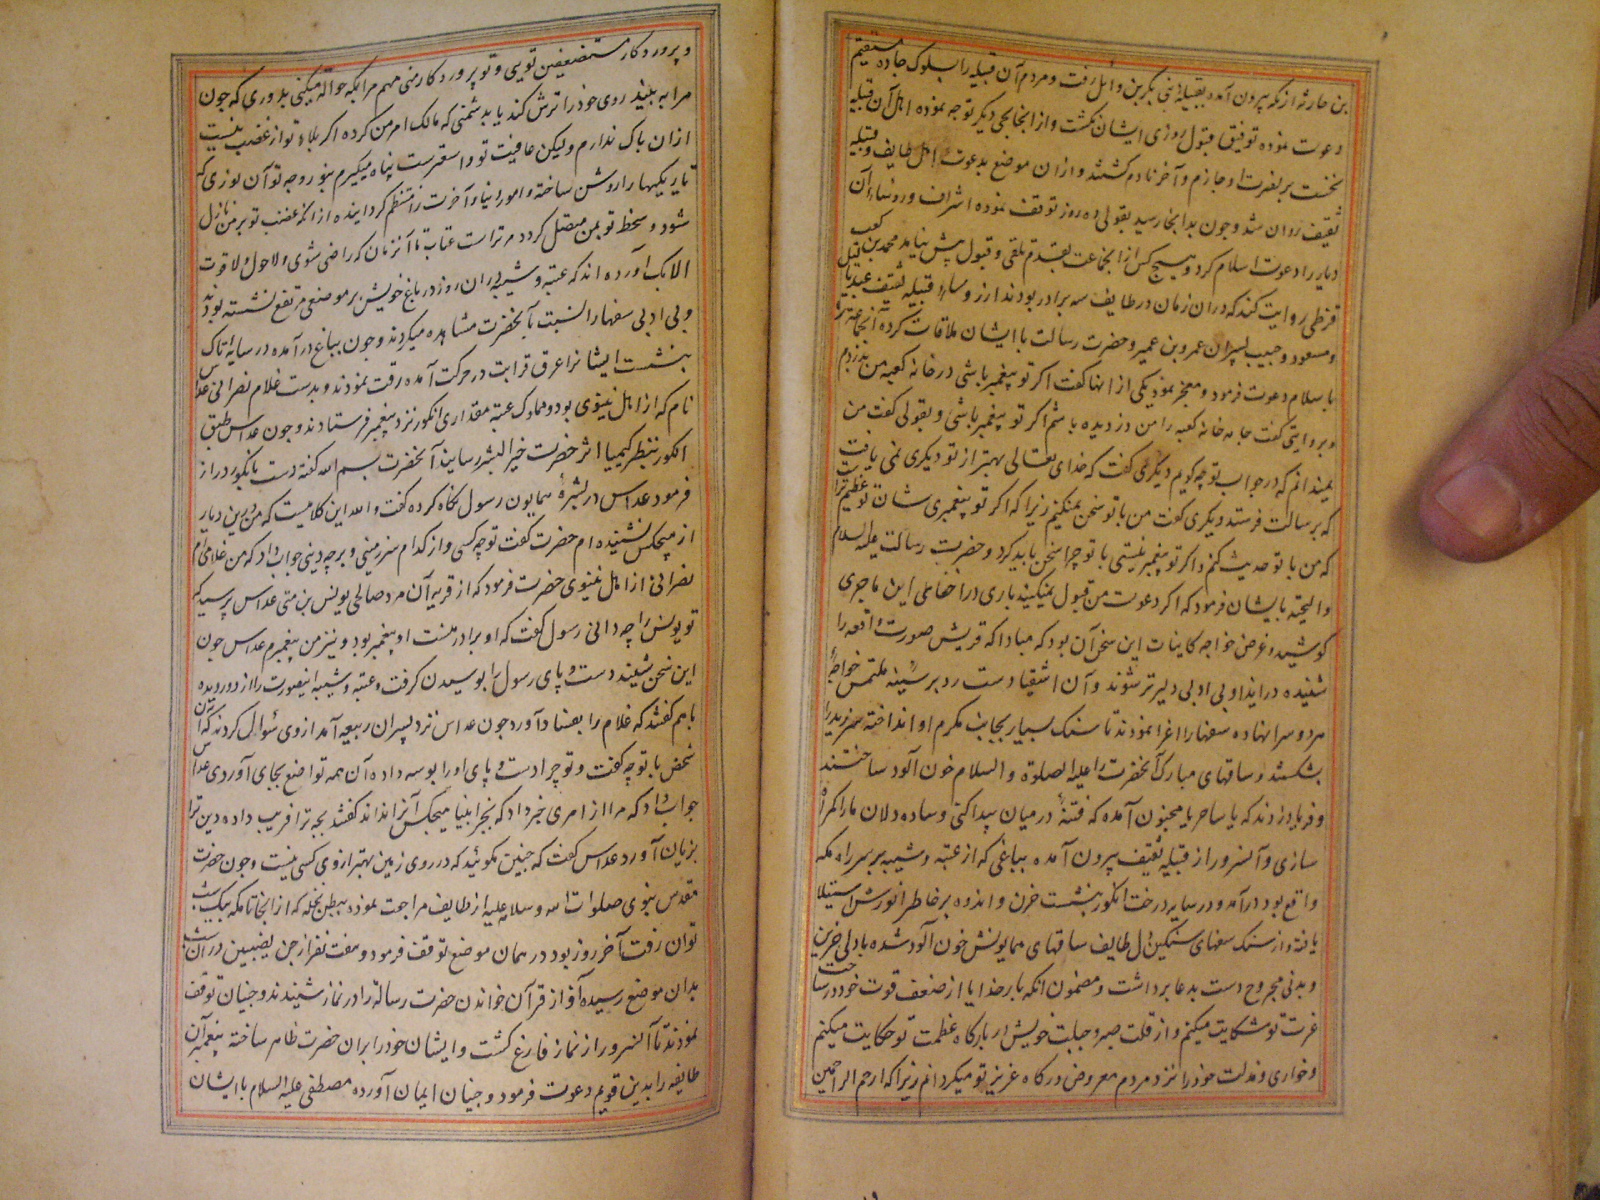 بن حارثه از مکه بیرون آمده بقبیله بنی بکر بن وائل رفت و مردم آن قبیله را بسلوک جاده مستقیم
دعوت نموده توفیق قبول روزی ایشان نکشت و از انجا بحی دیکر توجه نموده اهل آن قبیله
نخست بر نصرت او جازم و آخر نادم کشتند و از ان موضع بدعوت اهل طایف و قبیله
ثقیف روان شد و چون بدانجا رسید بقولی ده روز توقف نموده اشراف و رؤساء آن
دیار را دعوت اسلام کرد و هیچ کس از انجماعت بقدم تلقی و قبول پیش نیامد محمد بن کعب
قرظی روایت کند که در ان زمان در طایف سه برادر بودند از رؤساء قبیله ثقیف عبد یا لیل
و مسعود و حبیب پسران عمرو بن عمیر و حضرت رسالت با ایشان ملاقات کرده آنجماعة را
باسلام دعوت فرمود و معجز نمود یکی از انها کفت اکر تو پیغمبر باشی در خانه کعبه من دزدم
و بروایتی کفت جامه خانه کعبه را من دزدیده باشم اکر تو پیغمبر باشی و بقولی کفت من
نمیدانم که در جواب تو چه کویم دیکری کفت که خدای تعالی بهتر از تو دیکری نمی یافت
که برسالت فرستد دیکری کفت من با تو سخن نمیکنم زیرا که اکر تو پیغمبری شان تو عظیم تر است
که من با تو حدیث کنم و اکر تو پیغمبر نیستی با تو چرا سخن باید کرد و حضرت رسالت علیه السلام
بایشان فرمود که اکر دعوت من قبول نمیکنید باری در اخفای این ماجری
کوشید و غرض خواجه کاینات این سخن آن بود که مبادا که قریش صورت واقعه را
شنیده در ایذا و بی ادبی دلیر تر شوند و آن اشقیا دست رد بر سینه ملتمس خواجه
هر دو سرا نهاده سفها را اغرا نمودند تا سنک بسیار بجانب مکرم او انداخته
بشکستند و ساقهای مبارک آنحضرت را علیه الصلوة و السلام خون آلود ساختند
و فریاد زدند که یا ساحر یا مجنون آمده که فتنه در میان پیدا کنی و ساده دلان ما را کمراه
سازی و آنسرور از قبیله ثقیف بیرون آمده بباغی که از عتبه و شیبه بر سر راه مکه
واقع بود درآمد و در سایه درخت انکور بنشست حزن و اندوه بر خاطر انورش استیلا
یافته و از سنک سفهای سنکین دل طایف ساقهای همایونش خون آلود شده با دلی حزین
و بدنی مجروح دست بدعا برداشت و مضمون انکه بار خدایا از ضعف قوت خود در ساحت
عزت تو شکایت میکنم و از قلت صبر و جبلت خویش در بارکاه عظمت تو حکایت میکنم
و خواری و مذلت خود را نزد مردم معروض درکاه عزیز تو میکردانم زیرا که ارحم الراحمین
و پروردکار مستضعفین تویی و تو پروردکار منی مهم مرا بکه حواله میکنی بدوری که چون
مرا به بیند روی خود را ترش کند یا بدشمنی که مالک امر من کرده اکر بلاء تو از غضب نیست
از ان باک ندارم ولیکن عافیت تو واسعترست پناه میکیرم بنور وجه تو آن نوری که
تاریکیها را روشن ساخته و امور دنیا و آخرت را منتظم کردانیده از انکه غضب تو بر من نازل
شود و سخط تو بمن متصل کردد مر تراست عتاب تا آنزمان که راضی شوی و لا حول و لا قوت
الا بک آورده اند که عتبه و شیبه در ان روز در باغ خویش بر موضعی مرتفع نشسته بودند
و بی ادبی سفها را نسبت با آنحضرت مشاهده میکردند و چون بباغ درآمده در سایه تاک
بنشست ایشانرا عرق قرابت در حرکت آمده رقت نمودند و بدست غلام نصرانی عداس
نام که از اهل نینوی بود و مملوک عتبه مقداری انکور نزد پیغمبر فرستادند و چون عداس طبق
انکور بنظر کیمیا اثر حضرت خیر البشر رسانید آنحضرت بسم الله کفته دست بانکور دراز
فرمود عداس در بشرهٔ همایون رسول نکاه کرده کفت والله این کلامیست که من درین دیار
از هیچکس نشنیده ام حضرت کفت تو چه کسی و از کدام سرزمینی و بر چه دینی جواب داد که من غلامی ام
نصرانی از اهل نینوی حضرت فرمود که از قریه آن مرد صالحی یونس بن متی عداس پرسید که
تو یونس را چه دانی رسول کفت که او برادر منست او پیغمبر بود و نیز من پیغمبرم عداس چون
این سخن شنید دست و پای رسول را بوسیدن کرفت و عتبه و شیبه اینصورت را از دور دیده
باهم کفتند که غلام را بفساد آورد چون عداس نزد پسران ربیعه آمد از وی سؤال کردند که این
شخص با تو چه کفت و تو چرا دست و پای او را بوسه داده آن همه تواضع بجای آوردی عداس
جواب داد که مرا از امری خبر داد که بجز انبیا هیچکس آنرا نداند کفتند بچه ترا فریب داده دین ترا
بزیان آورد عداس کفت که چنین مکوئید که در روی زمین بهتر از وی کسی نیست و چون حضرت
مقدس نبوی صلوات الله و سلامه علیه از طایف مراجعت نموده ببطن نخله که از انجا تا مکه بیکشب
توان رفت آخر روز بود در همان موضع توقف فرمود و هفت نفر از جن نصیبین در ان شب
بدان موضع رسیده آواز قرآن خواندن حضرت رسالة را در نماز شنیدند و جنیان توقف
نمودند تا آنسرور از نماز فارغ کشت و ایشان خود را بران حضرت ظاهر ساخته پیغمبر آن
طایفه را بدین قویم دعوت فرمود و جنیان ایمان آورده مصطفی علیه السلام با ایشان